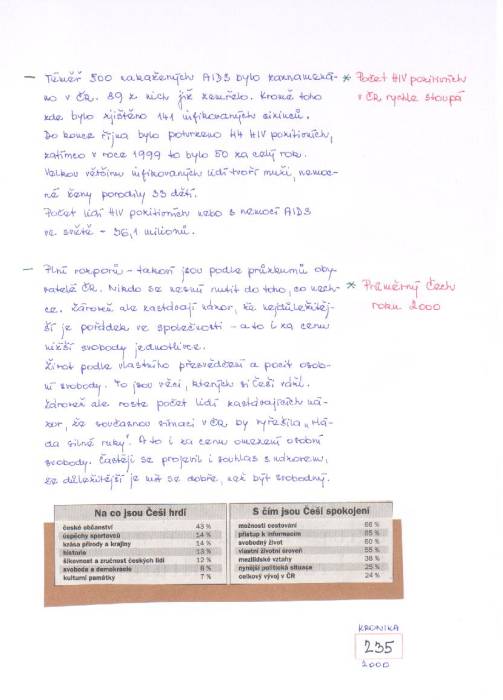 – Téměř 500 nakažených AIDS bylo zaznamená-
no v ČR. 89 z nich již zemřelo. Kromě toho
zde bylo zjištěno 141 infikovaných cizinců.
Do konce října bylo potvrzeno 44 HIV pozitivních,
zatímco v roce 1999 to bylo 50 za celý rok.
Velkou většinu infikovaných lidí tvoří muži, nemoc-
né ženy porodily 33 dětí.
Počet lidí HIV pozitivních nebo s nemocí AIDS
ve světě – 36,1 milionů.
* Počet HIV pozitivních
v ČR rychle stoupá
– Plni rozporů – takoví jsou podle průzkumů oby-
vatelé ČR. Nikdo se nesmí nutit do toho, co nech-
ce. Zároveň ale zastávají názor, že nejdůležitěj-
ší je pořádek ve společnosti – a to i za cenu
nižší svobody jednotlivce.
Život podle vlastního přesvědčení a pocit osob-
ní svobody. To jsou věci, kterých si Češi váží.
Zároveň ale roste počet lidí zastávajících ná-
zor, že současnou situaci v ČR by vyřešila „vlá-
da silné ruky". A to i za cenu omezení osobní
svobody. Častěji se projevil i souhlas s názorem,
že důležitější je mít se dobře, než být svobodný.
* Průměrný Čech
roku 2000
Na co jsou Češi hrdí
české občanství 43 %
úspěchy sportovců 14 %
krása přírody a krajiny 14 %
historie 13 %
šikovnost a zručnost českých lidí 12 %
svoboda a demokracie 8 %
kulturní památky 7 %
S čím jsou Češi spokojení
možnosti cestování 66 %
přístup k informacím 65 %
svobodný život 60 %
vlastní životní úroveň 55 %
mezilidské vztahy 38 %
nynější politická situace 25 %
celkový vývoj v ČR 24 %
KRONIKA
235
2000